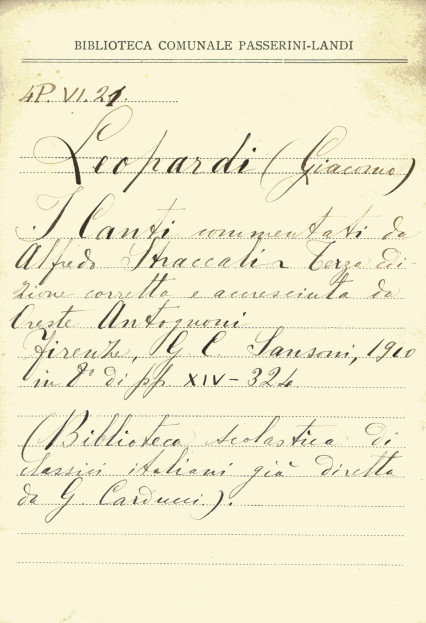 BIBLIOTECA COMUNALE PASSERINI-LANDI
4P. VI. 21.
Leopardi (Giacomo)
I Canti commentati da
Alfredo Straccali - Terza edi
zione corretta e accresciuta da
Oreste Antognoni
Firenze, G. C. Sansoni, 1910
in 8° di pp XIV - 324
(Biblioteca scolastica di
classici italiani già diretta
da G. Carducci).